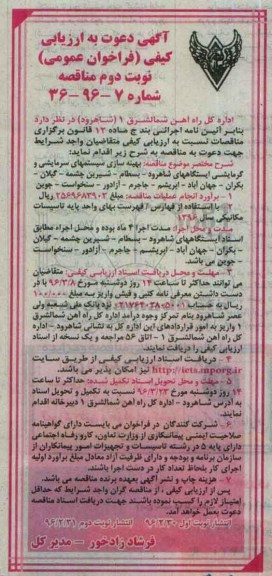 آگهی دعوت به ارزیابی
کیفی (فراخوان عمومی)
نوبت دوم مناقصه
شماره ۷-۹۶-۳۶
اداره کل راه آهن شمالشرق ۱ (شاهرود) در نظر دارد
بنابر آئین نامه اجرائی بند ج ماده ۱۲ قانون برگزاری
مناقصات نسبت به ارزیابی کیفی متقاضیان واجد شرایط
جهت دعوت به مناقصه به شرح زیر اقدام نماید:
شرح مختصر موضوع مناقصه: بهینه سازی سیستمهای سرمایشی و
گرمایشی ایستگاههای شاهرود - بسطام - شیرین چشمه - گیلان -
بکران - جهان آباد - ابریشم - جاجرم - آزادور - سنخواست - جوین
۱- برآورد انجام عملیات مناقصه: مبلغ ۲۵۶۹۶۸۳۹۰۳ ریال
۲- با استفاده از فهارس / فهرست بهای واحد پایه تاسیسات
مکانیکی سال ۱۳۹۶
مدت و محل اجرا: مدت اجرا ۴ ماه بوده و محل اجراء مطابق
اسناد ایستگاههای شاهرود - بسطام - شیرین چشمه - گیلان
- بکران - جهان آباد - ابریشم - جاجرم - آزادور - سنخواست
- جوین می باشد.
۳- مهلت و محل دریافت اسناد ارزیابی کیفی: متقاضیان
می توانند حداکثر تا ساعت ۱۴ روز دوشنبه مورخ ۹۶/۳/۸ با در
دست داشتن معرفی نامه کتبی و فیش واریز به مبلغ ۱۰۰/۰۰۰
ریال به حساب نزد بانک ملی شعبه ولی
عصر شاهرود بنام تمرکز وجوه درآمد اداره کل راه آهن شمالشرق
۱ واریز به امور قراردادهای این اداره کل به نشانی شاهرود - اداره
کل راه آهن شمالشرق ۱ - اتاق ۵۶ مراجعه و یک نسخه از اسناد
ارزیابی کیفی را دریافت نمایند.
۴- دریافت اسناد ارزیابی کیفی از طریق سایت
http://iets.mporg.ir نیز امکان پذیر می باشد.
۵- مهلت و محل تحویل اسناد تکمیل شده: حداکثر تا ساعت
۱۴ روز دوشنبه مورخ ۹۶/۳/۲۲ نسبت به تکمیل و تحویل اسناد
به آدرس شاهرود - اداره کل راه آهن شمالشرق ۱ دبیرخانه اقدام
نمایند.
۶- شرکت کنندگان در فراخوان می بایست دارای گواهینامه
صلاحیت ایمنی پیمانکاری از وزارت تعاون، کار و رفاه اجتماعی
دارای پایه ۵ در رشته تاسیسات و تجهیزات امور پیمانکاران از
سازمان برنامه و بودجه و دارای ظرفیت آزاد معادل مبلغ برآورد اولیه
اجرای کار بلحاظ تعداد کار در دست اجرا باشند.
۷- هزینه چاپ و نشر آگهی بعهده برنده مناقصه می باشد.
پس از ارزیابی کیفی، از مناقصه گران واجد شرایط که حداقل
امتیاز لازم را کسب نموده باشند جهت دریافت اسناد مناقصه
دعوت بعمل خواهد آمد.
انتشار نوبت اول ۹۶/۲/۳۰ انتشار نوبت دوم ۹۶/۲/۳۱
فرشاد زادخور - مدیر کل